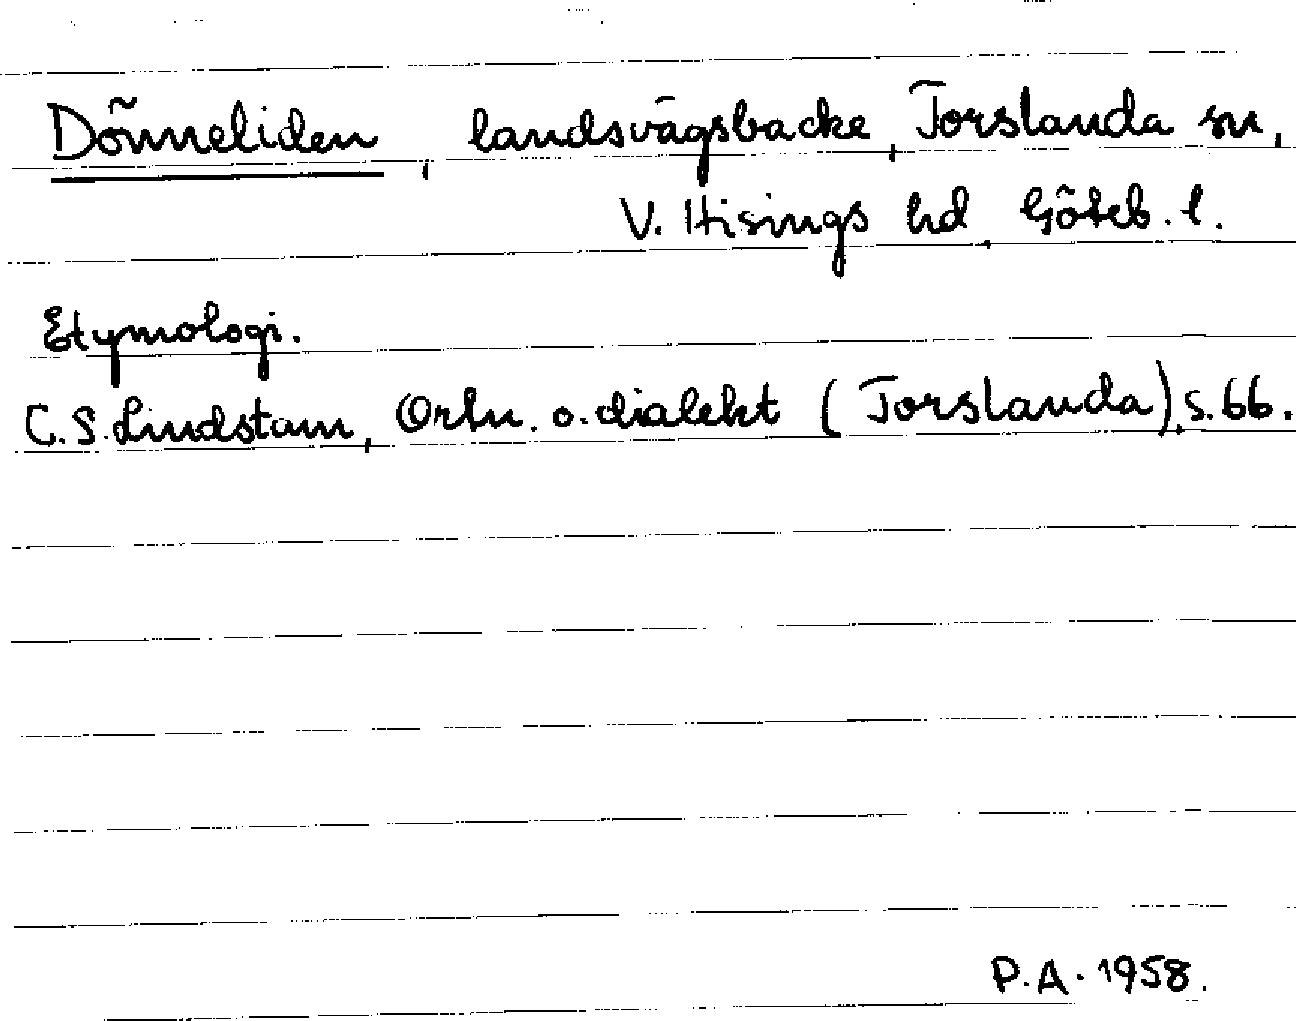 Dönneliden, landsvägsbacke, Torslanda sn,
V. Hisings hd, Göteb. l.
Etymologi.
C. S. Lindstam, Ortn. o. dialekt (Torslanda), s. 66.
P. A. 1958.